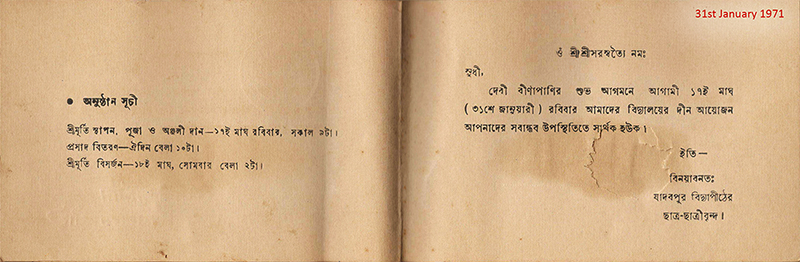 ● অনুষ্ঠান সূচী
শ্রীমূর্তি স্থাপন, পূজা ও অঞ্জলী দান—১৭ই মাঘ রবিবার, সকাল ৯টা।
প্রসাদ বিতরণ—ঐদিন বেলা ১০টা।
শ্রীমূর্তি বিসর্জন—১৮ই মাঘ, সোমবার বেলা ২টা।
31st January 1971
ওঁ শ্রীশ্রীসরস্বত্যৈ নমঃ
সুধী,
দেবী বীণাপাণির শুভ আগমনে আগামী ১৭ই মাঘ
( ৩১শে জানুয়ারী ) রবিবার আমাদের বিদ্যালয়ের দীন আয়োজন
আপনাদের সবান্ধব উপস্থিতিতে সার্থক হউক।
ইতি—
বিনয়াবনতঃ
যাদবপুর বিদ্যাপীঠের
ছাত্র-ছাত্রীবৃন্দ।